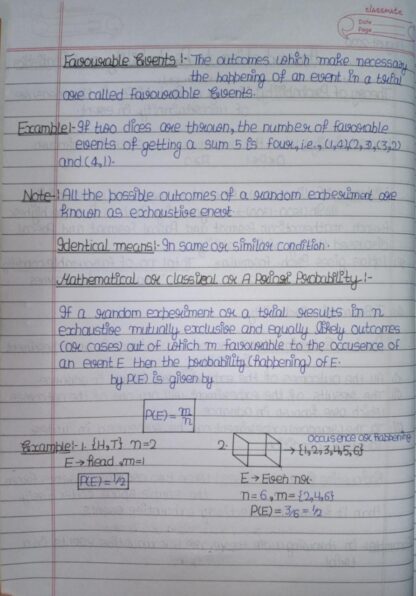 classmate
Date
Page
Favourable Events :- The outcomes which make necessary
the happening of an event in a trial
are called favourable events.
Example:- If two dices are thrown, the number of favorable
events of getting a sum 5 is four, i.e., (1,4)(2,3),(3,2)
and (4,1).
Note:- All the possible outcomes of a random experiment are
known as exhaustive enent.
Identical means:- In same or similar condition.
Mathematical or classical or A Priori Probability :-
If a random experiment or a trial results in n
exhaustive mutually exclusive and equally likely outcomes
(or cases) out of which m favourable to the occusence of
an event E then the probability (happening) of E.
by P(E) is given by
P(E) = m/n
occusence or happening
Example:- 1. {H,T} n=2
2. → {1,2,3,4,5,6}
E → Head, m=1
E → Even no.
P(E) = 1/2
n = 6, m = {2,4,6}
P(E) = 3/6 = 1/2